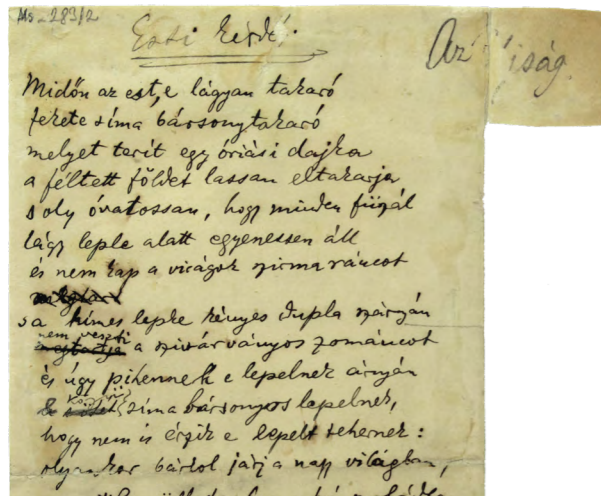 Ms - 289/2
Esti kérdés.
Az Ujság.
Midőn az est, e lágyan takaró
fekete síma bársonytakaró
melyet terít egy óriási dajka
a féltett földet lassan eltakarja
s oly óvatossan, hogy minden fűszál
lágy leple alatt egyenessen áll
és nem kap a virágok szirma ráncot
s a hímes lepke kényes dupla szárnyán
nem veszti
megtartja a szivárványos zománcot
és úgy pihennek e lepelnek árnyán
síma bársonyos lepelnek,
hogy nem is érzik e lepelt tehernek:
olyankor bárhol járj a nagy világban,